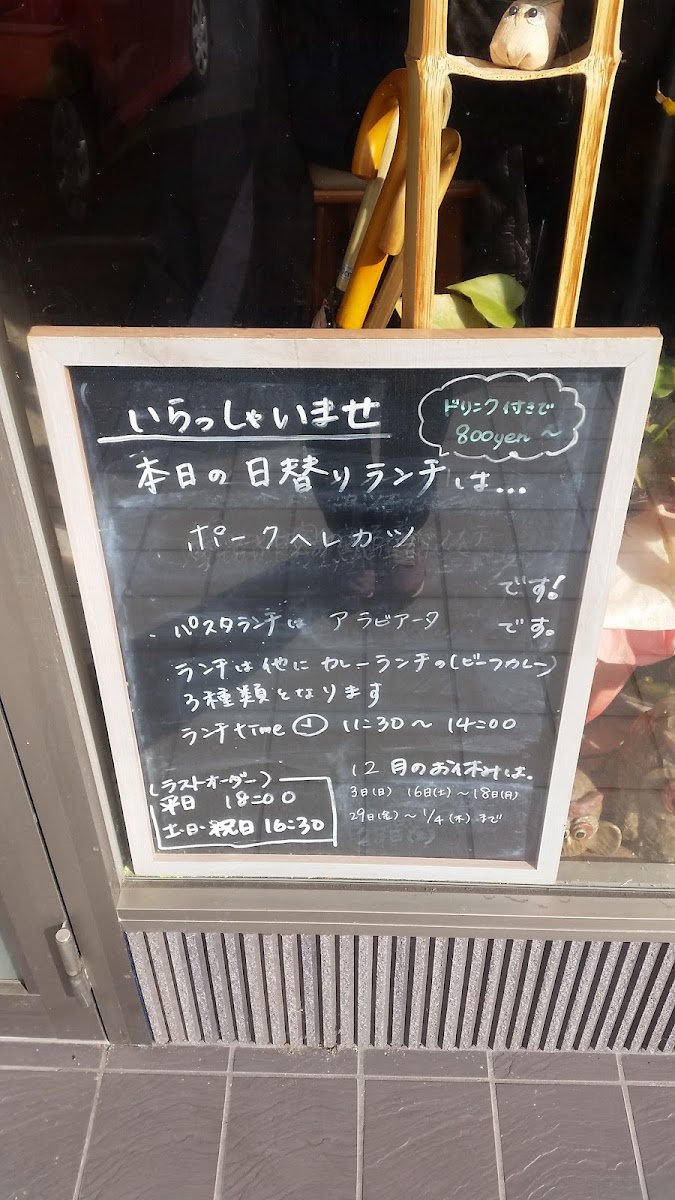 いらっしゃいませ
ドリンク付きで
800yen～
本日の日替りランチは...
ポークヘレカツ
です!
パスタランチは アラビアータ です。
ランチは他に カレーランチの(ビーフカレー)
3種類となります
ランチtime 11:30～14:00
(ラストオーダー)
平日 18:00
土・日・祝日 16:30
12月のお休みは。
3日(日) 16日(土)～18日(月)
29日(金)～1/4(木)まで